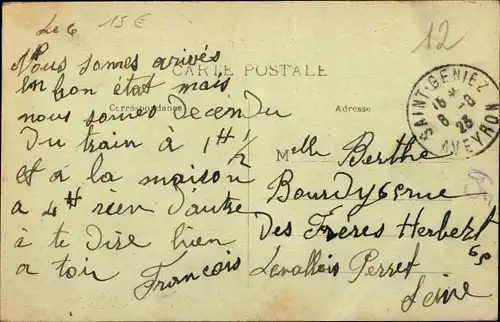 Le 6
15 €
12
Nous somes arivés
en bon état mais
nous somes decendu
du train à 1H 1/2
et à la maison
a 4H rien d'autre
à te dire bien
a toi François
CARTE POSTALE
Correspondance
Adresse
SAINT-GENIEZ
15 * 6-8 23
AVEYRON
Melle Berthe
des Frères Herbert
65
Levallois Perret
Seine